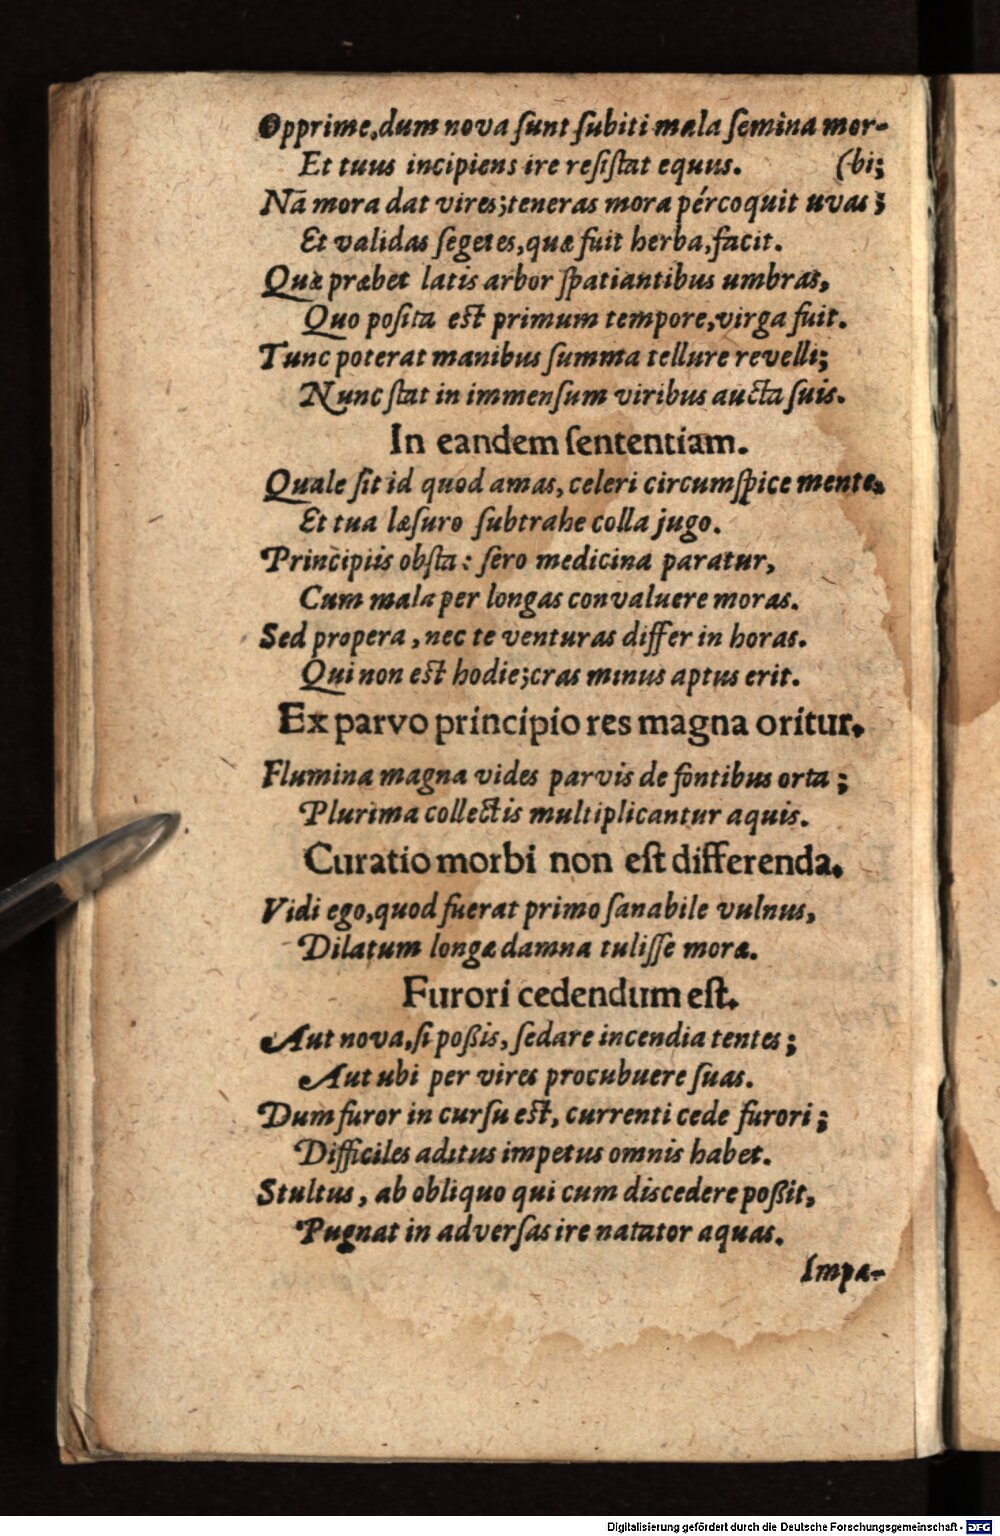 Opprime, dum nova ſunt ſubiti mala ſemina mor-
Et tuus incipiens ire reſiſtat equus. (bi;
Nã mora dat vires; teneras mora pércoquit uvas;
Et validas ſegetes, quæ fuit herba, facit.
Quæ præbet latis arbor ſpatiantibus umbras,
Quo poſita eſt primum tempore, virga fuit.
Tunc poterat manibus ſumma tellure revelli;
Nunc ſtat in immenſum viribus aucta ſuis.
In eandem ſententiam.
Quale ſit id quod amas, celeri circumſpice mente.
Et tua læſuro ſubtrahe colla jugo.
Principiis obſta: ſero medicina paratur,
Cum mala per longas convaluere moras.
Sed propera, nec te venturas differ in horas.
Qui non eſt hodie; cras minus aptus erit.
Ex parvo principio res magna oritur.
Flumina magna vides parvis de fontibus orta;
Plurima collectis multiplicantur aquis.
Curatio morbi non eſt differenda.
Vidi ego, quod fuerat primo ſanabile vulnus,
Dilatum longæ damna tuliſſe moræ.
Furori cedendum eſt.
Aut nova, ſi poßis, ſedare incendia tentes;
Aut ubi per vires procubuere ſuas.
Dum furor in curſu eſt, currenti cede furori;
Difficiles aditus impetus omnis habet.
Stultus, ab obliquo qui cum discedere poßit,
Pugnat in adverſas ire natator aquas.
Impa-
Digitalisierung gefördert durch die Deutsche Forschungsgemeinschaft - DFG